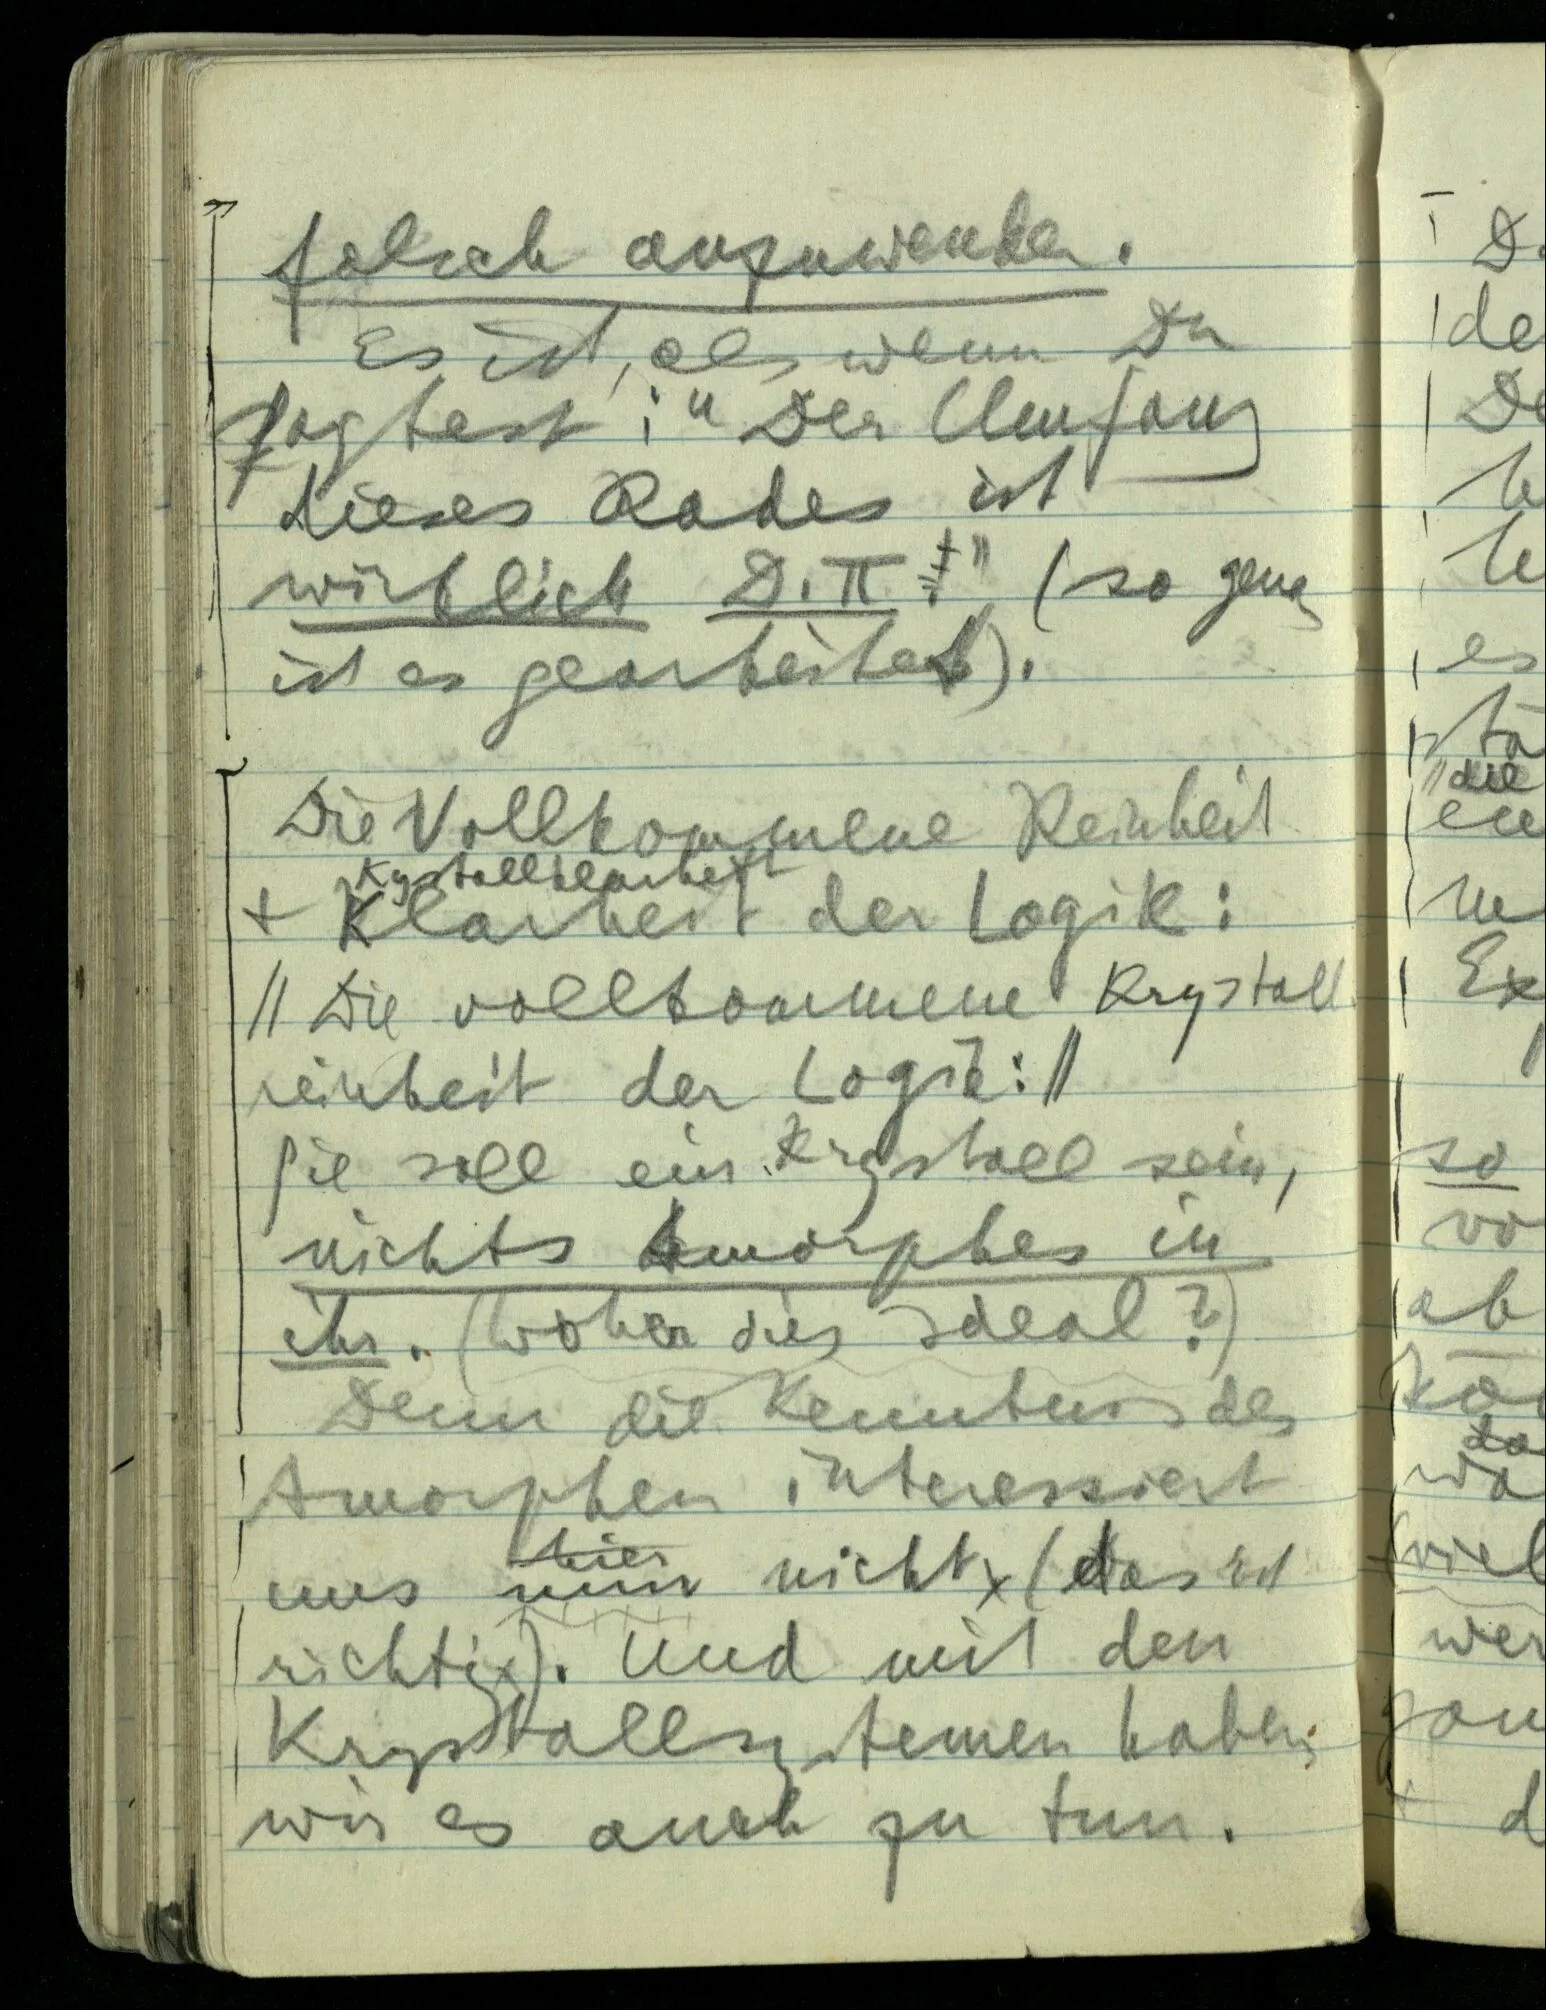 falsch anzuwenden.
Es ist, als wenn Du
sagtest: "Der Umfang
dieses Rades ist
wirklich D.π" (so genau
ist es gearbeitet).
Die Vollkommene Reinheit
Krystallklarheit
+ Klarheit der Logik:
// Die vollkommene Krystall
reinheit der Logik: //
Sie soll ein Krystall sein,
nichts Amorphes in
ihr. (Woher dies Ideal?)
Denn die Kenntnis des
Amorphen interessiert
hier
uns nun nicht (das ist
richtig). Und mit den
Krystallsystemen haben
wir es auch zu tun.
de
es
"die
Ex
so
vo
ab